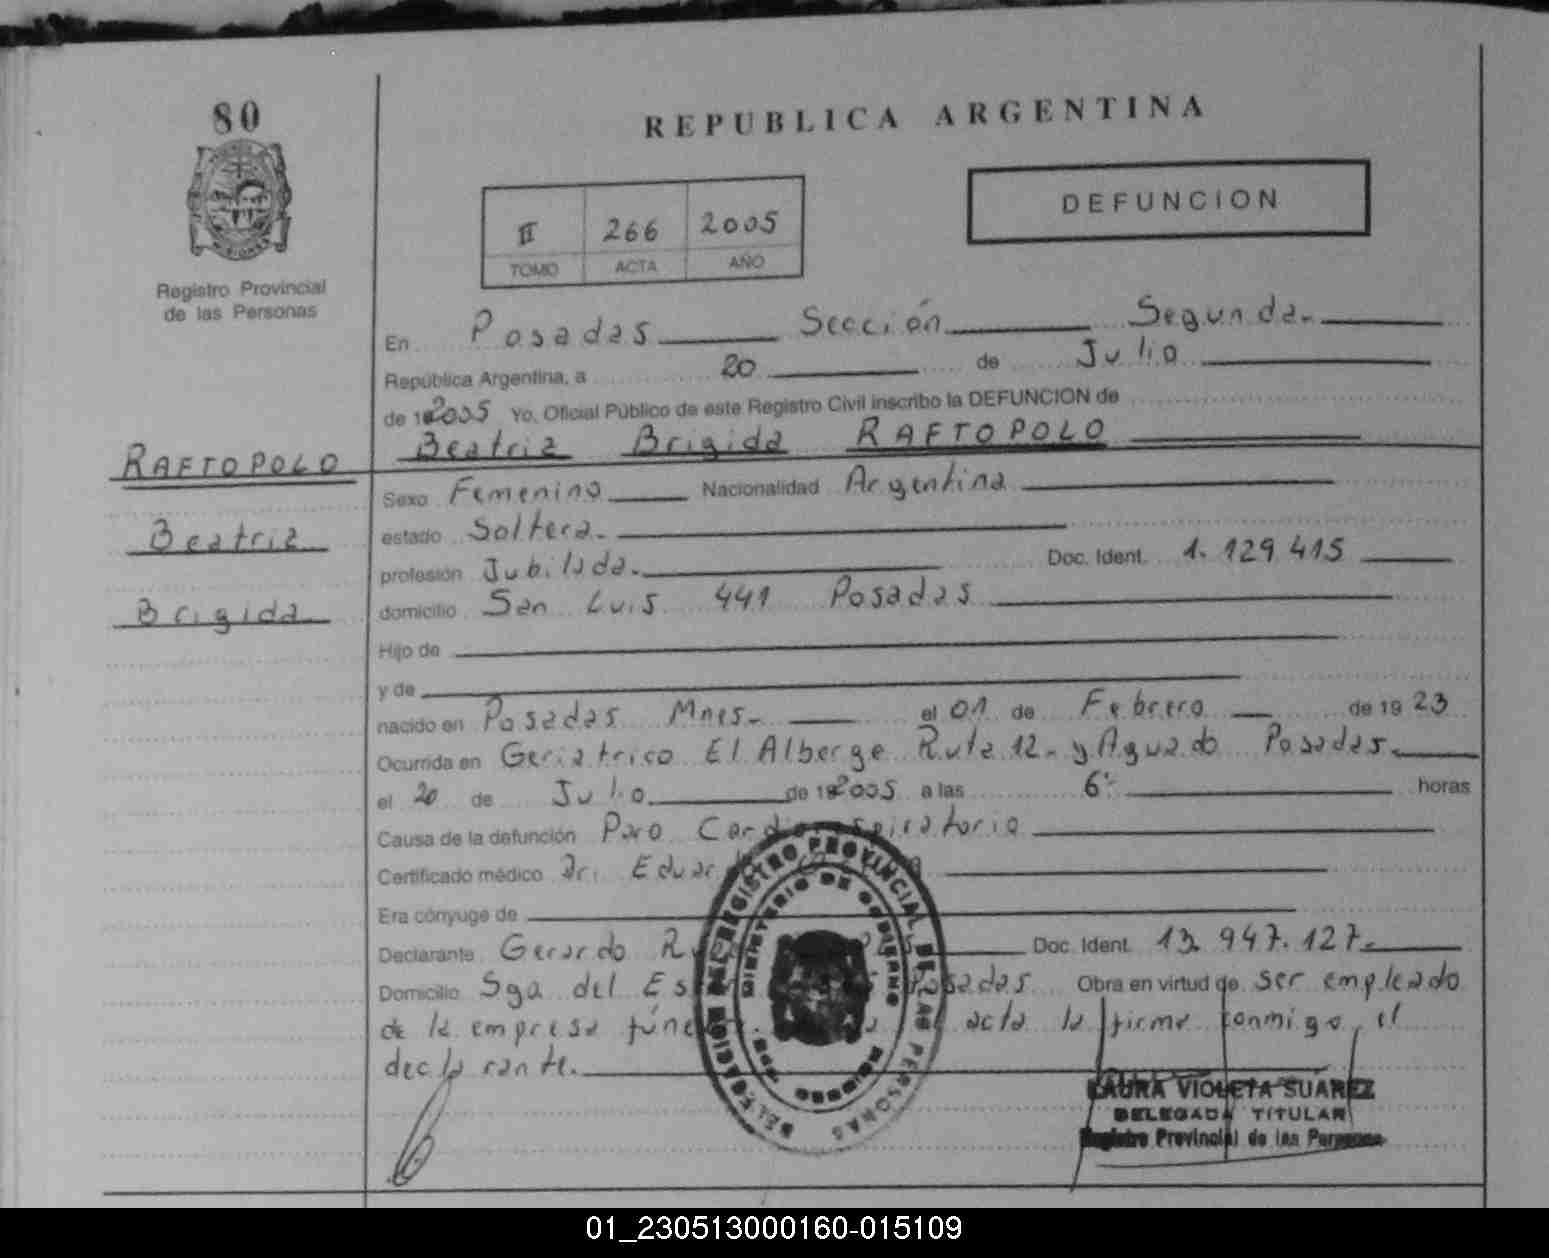 80
REPUBLICA ARGENTINA
DEFUNCION
II 266 2005
TOMO ACTA AÑO
Registro Provincial
de las Personas
En Posadas Sección Segunda.
República Argentina, a 20 de Julio
de 2005 Yo, Oficial Público de este Registro Civil inscribo la DEFUNCION de
Beatriz Brigida RAFTOPOLO
RAFTOPOLO
Beatriz
Brigida
Sexo Femenino Nacionalidad Argentina
estado Soltera.
profesión Jubilada. Doc. Ident. 1.129.415
domicilio San Luis 441 Posadas
Hijo de
y de
nacido en Posadas Mnes. el 01 de Febrero de 1923
Ocurrida en Geriatrico El Alberge Ruta 12. y Aguado Posadas.
el 20 de Julio de 2005 a las 6: horas
Causa de la defunción Paro Cardiorespiratorio
Certificado médico Dr.
Era cónyuge de
Declarante Gerardo Doc. Ident. 13.947.127.
Domicilio Sgo del Posadas Obra en virtud de ser empleado
de la empresa acta la firma conmigo, el
declarante.
DELEGACION DEL REGISTRO PROVINCIAL DE LAS PERSONAS
MINISTERIO DE GOBIERNO
LAURA VIOLETA SUAREZ
DELEGADA TITULAR
Registro Provincial de las Personas
01_230513000160-015109